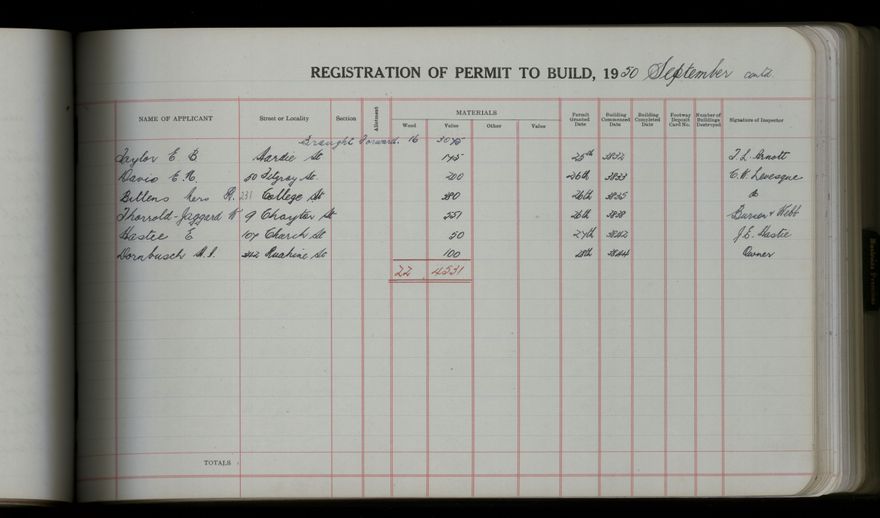 REGISTRATION OF PERMIT TO BUILD, 1950 September contd.
NAME OF APPLICANT Street or Locality Section Allotment MATERIALS Wood Value Other Value Permit Granted Date Building Commenced Date Building Completed Date Footway Deposit Card No. Number of Buildings Destroyed Signature of Inspector
Brought Forward. 16
Taylor E B Hardie St 145 25th 3832 T. L. Arnott
Davis E. R. 50 Fitzroy St. 200 26th 3833 C. W. Levesque
Mrs R. 231 College St 380 26th 3835 do
Thorrold-Jaggard W 9 Chaytor St 26th 3838 & Webb
Hastie E 107 Church St 50 27th 3842 J. E. Hastie
Dornbusch 342 Ruahine St 100 28th 3844 Owner
22 4531
TOTALS